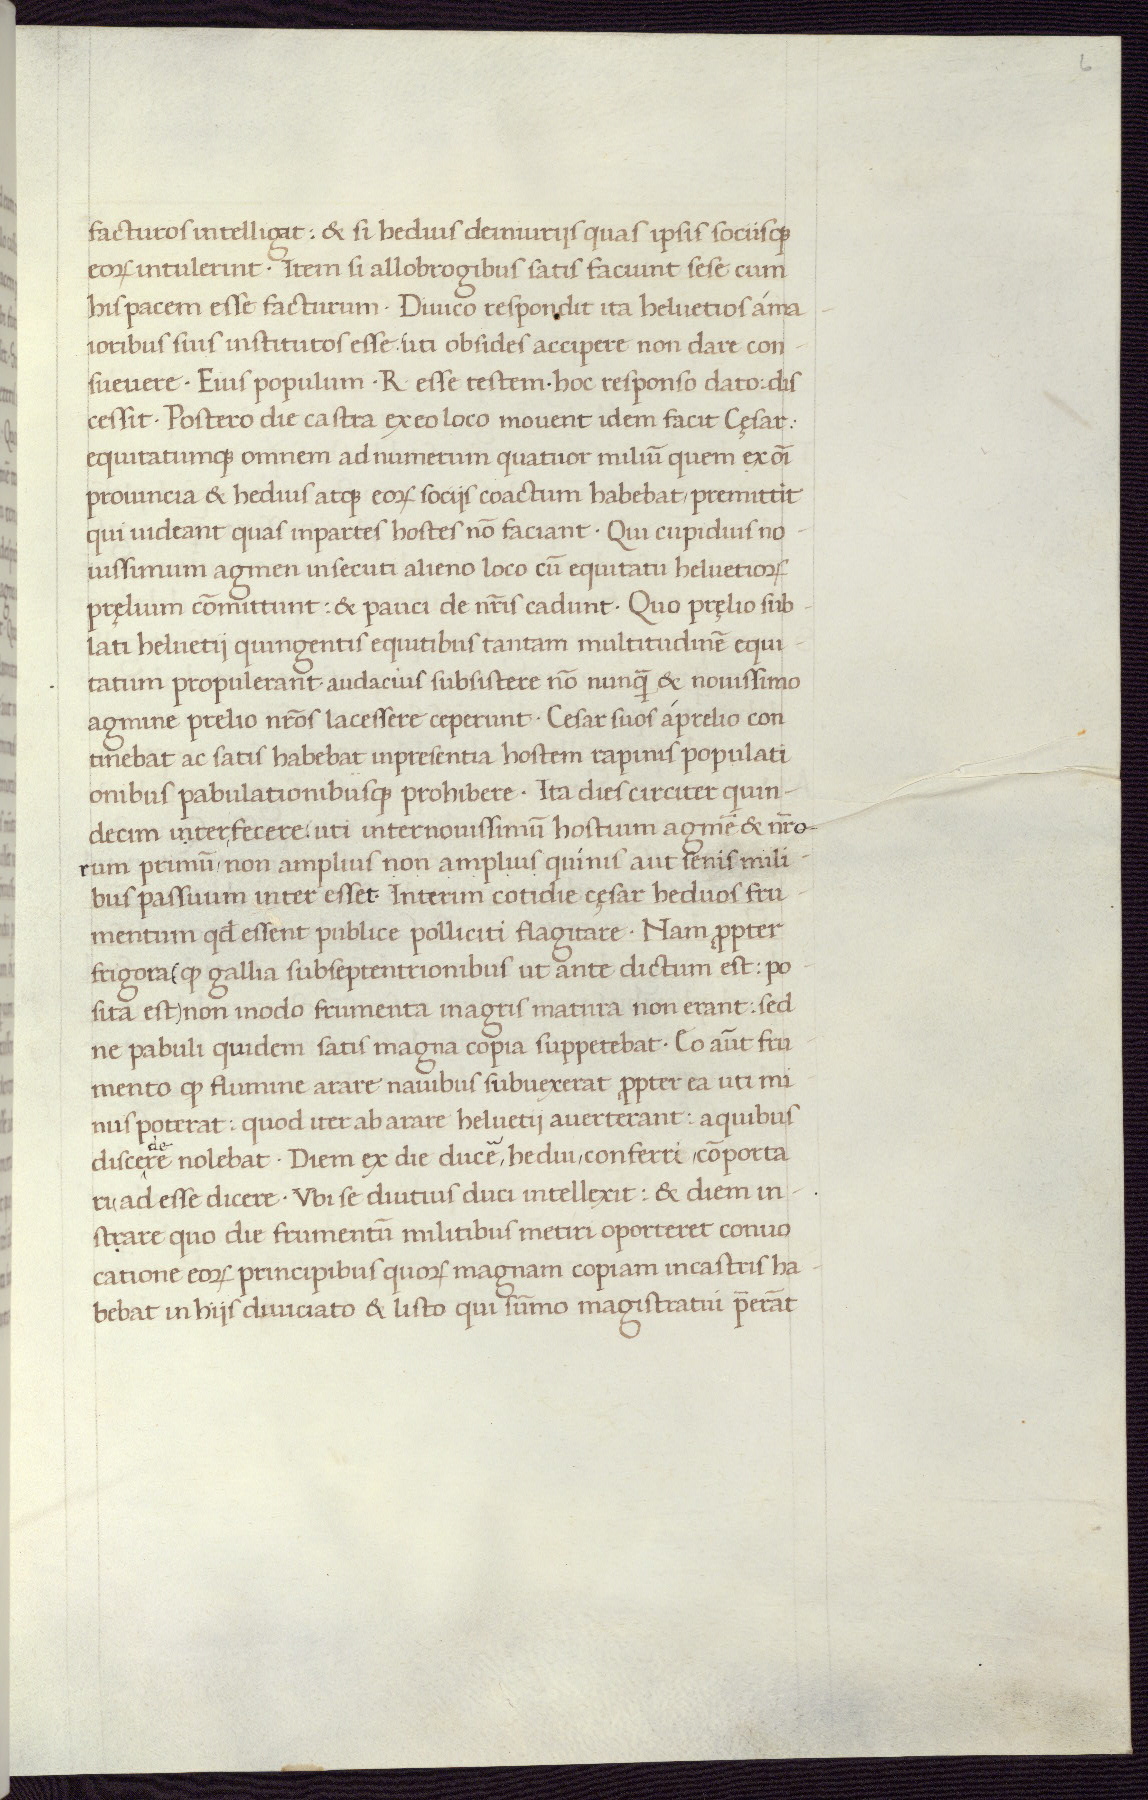 6
facturos intelligat : & si heduis deiniurijs quas ipsis sociisqꝫ
eoꝝ intulerint · Item si allobrogibus satis faciunt sese cum
his pacem esse facturum · Diuico respondit ita heluetios áma
ioribus suis institutos esse : uti obsides accipere non dare con
sueuere · Eius populum · R esse testem · hoc responso dato : dis
cessit · Postero die castra exeo loco mouent idem facit Cęsar :
equitatumqꝫ omnem ad numerum quatuor miliū quem ex oī
prouincia & heduis atqꝫ eoꝝ socijs coactum habebat / premittit
qui uideant quas inpartes hostes nō faciant · Qui cupidius no
uissimum agmen insecuti alieno loco cū equitatu heluetioꝝ
pręlium cōmittunt : & pauci de nr̄is cadunt · Quo pręlio sub
lati heluetij quingentis equitibus tantam multitudinē equi
tatum propulerant · audacius subsistere nō nunq̄ & nouissimo
agmine prelio nr̄os lacessere ceperunt · Cesar suos áprelio con
tinebat ac satis habebat inpresentia hostem rapinis populati
onibus pabulationibusqꝫ prohibere · Ita dies circiter quin
decim interfecere / uti internouissimū hostium agmē & nr̄o
rum primū / non amplius non amplius quinis aut senis mili
bus passuum inter esset · Interim cotidie cęsar heduos fru
mentum qđ essent publice polliciti flagitare · Nam ꝓpter
frigora ( qꝫ gallia subseptentrionibus ut ante dictum est : po
sita est ) non modo frumenta inagris matura non erant : sed
ne pabuli quidem satis magna copia suppetebat · Eo aūt fru
mento qꝫ flumine arare nauibus subuexerat ꝓpter ea uti mi
nus poterat : quod iter ab arare heluetij auerterant : aquibus
de
discerē nolebat · Diem ex die ducē / hedui / conferri / cōporta
ri / ad esse dicere · Vbi se diutius duci intellexit : & diem in
strare quo die frumentū militibus metiri oporteret conuo
catione eoꝝ principibus quoꝝ magnam copiam incastris ha
bebat in hijs diuiciato & listo qui sūmo magistratui p̄erāt